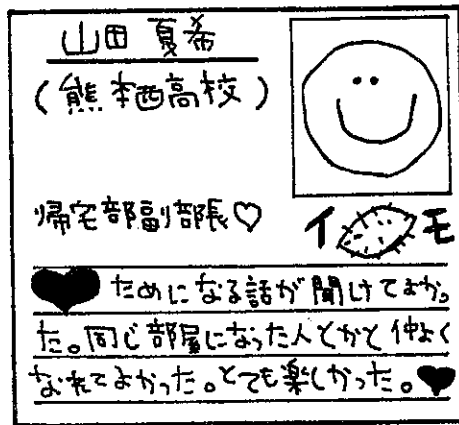 山田 夏希
(熊本西高校)
帰宅部副部長♡
イモ
♥ ためになる話が聞けてよかっ
た。同じ部屋になった人とかと仲よく
なれてよかった。とても楽しかった。♥